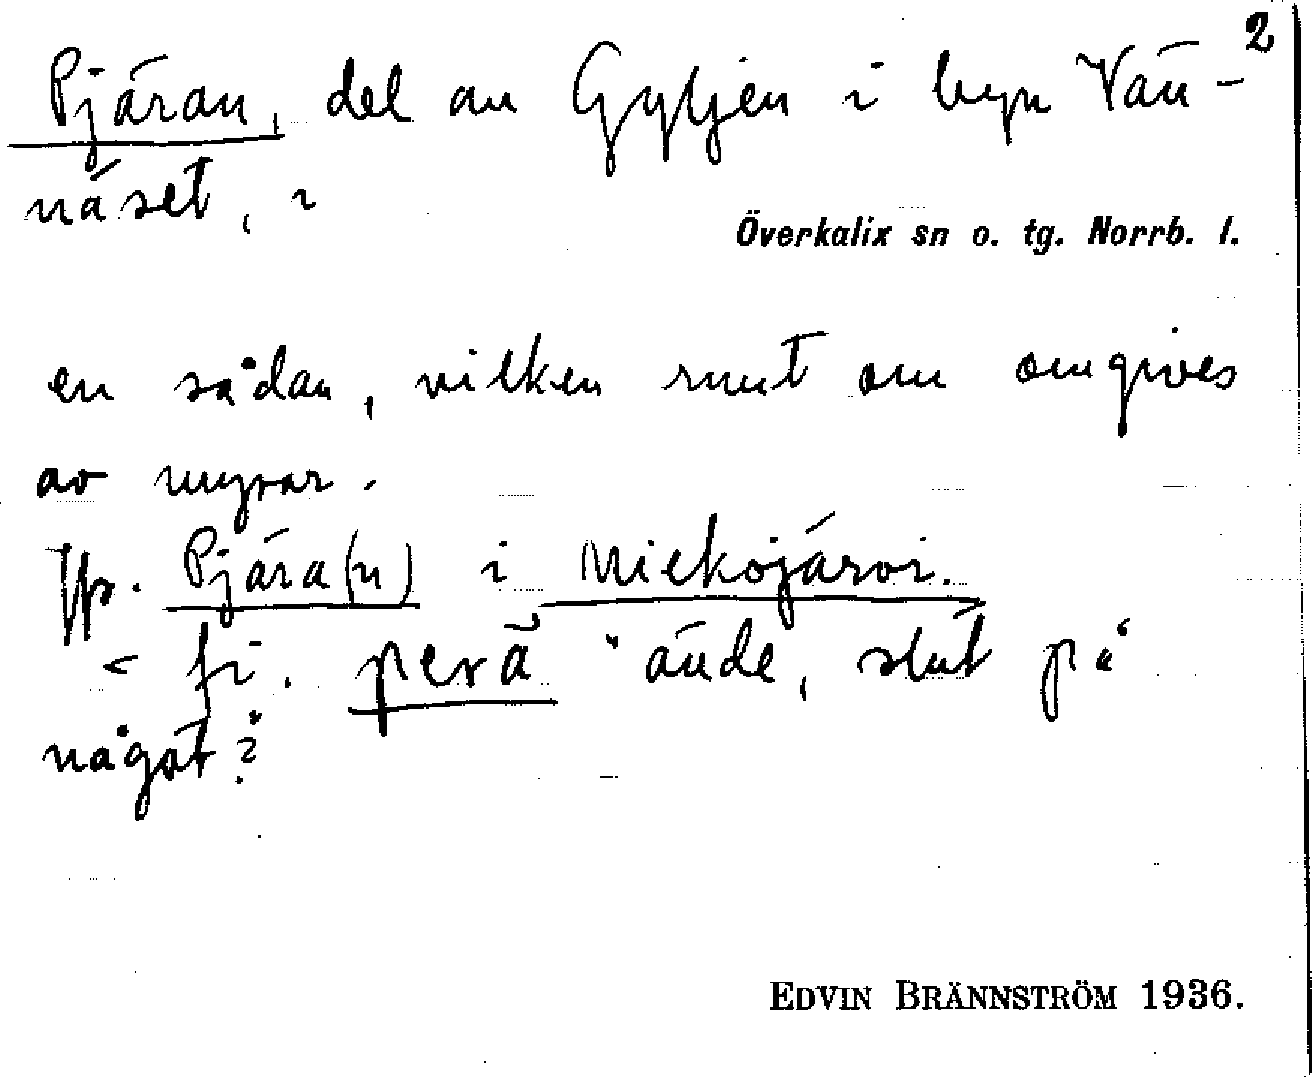 2
Pjäran, del au Gyljen i byn Vän-
näset, i
Överkalix sn o. tg. Norrb. l.
en sådan, vilken runt om omgives
av myrar.
Jfr. Pjära(n) i Miekojärvi.
< fi. perä "ände, slut på
något?"
EDVIN BRÄNNSTRÖM 1936.